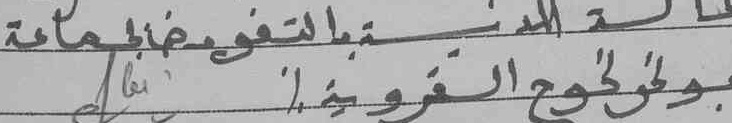 الحالة المدنية بالتفويض لجماعة
بولخوخ القروية